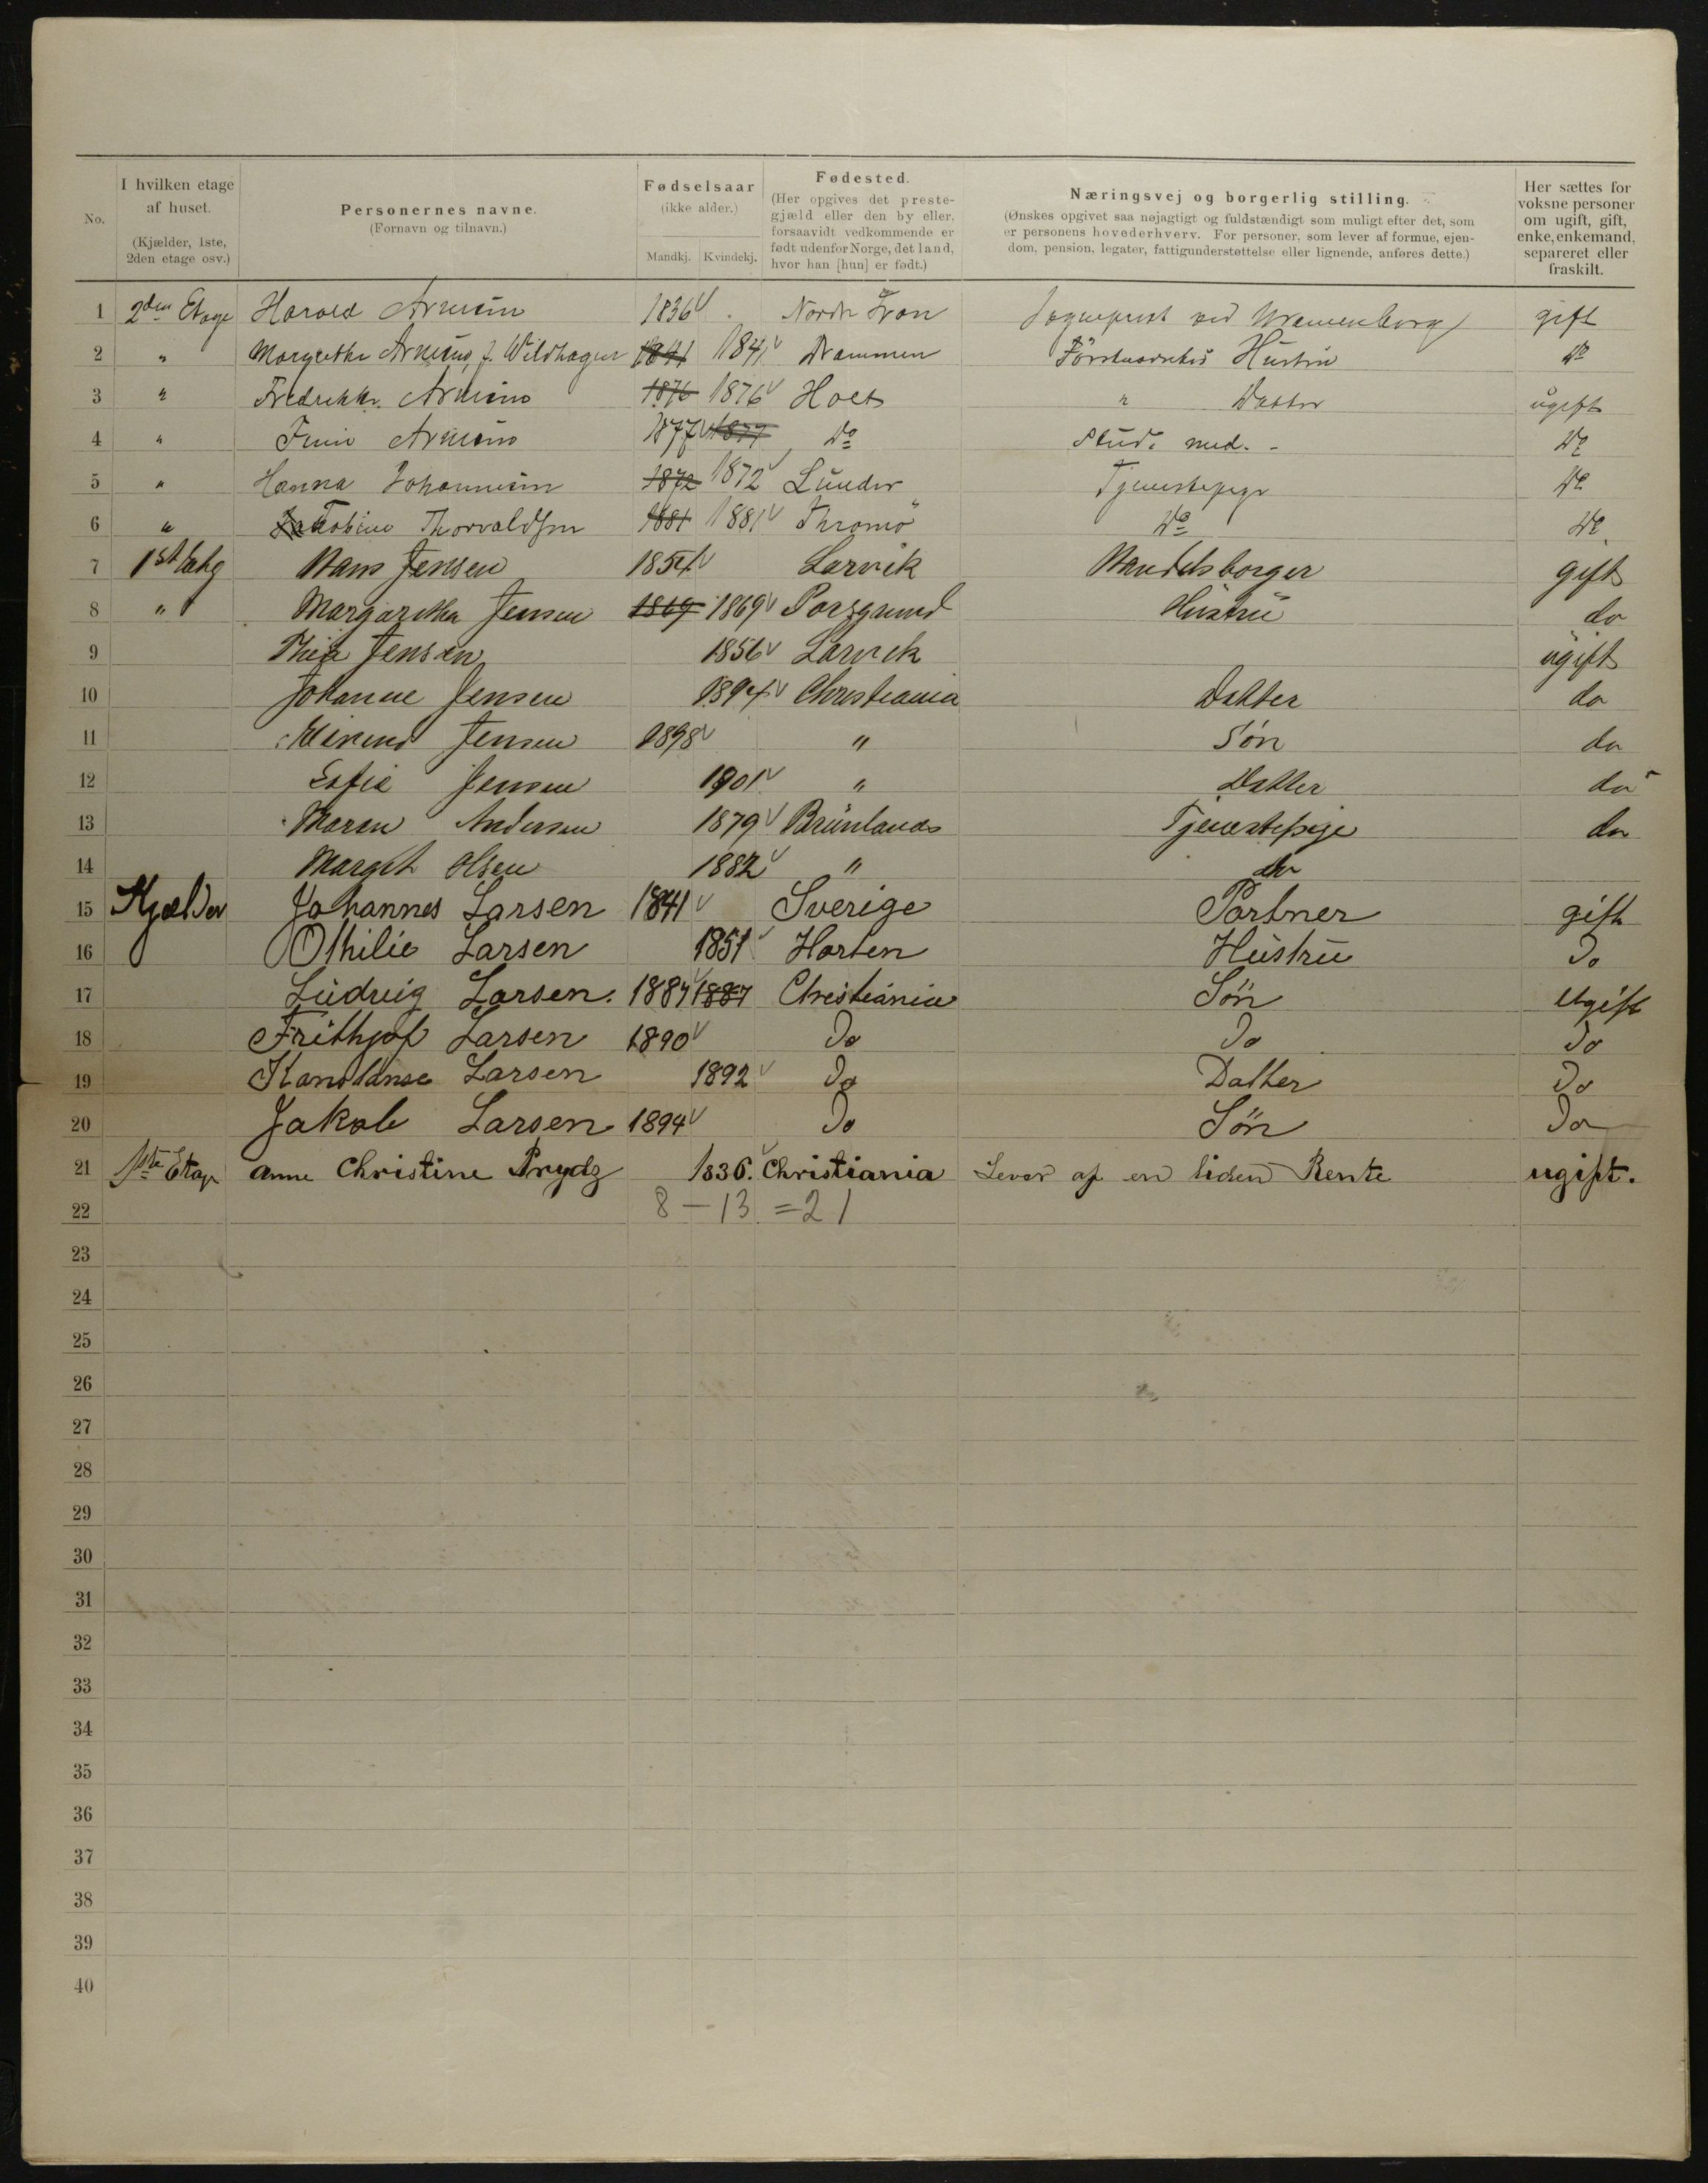 No. I hvilken etage af huset. (Kjælder, 1ste, 2den etage osv.) Personernes navne. (Fornavn og tilnavn.) Fødselsaar (ikke alder.) Mandkj. Kvindekj. Fødested. (Her opgives det prestegjæld eller den by eller, forsaavidt vedkommende er født udenfor Norge, det land, hvor han [hun] er født.) Næringsvej og borgerlig stilling. (Ønskes opgivet saa nøjagtigt og fuldstændigt som muligt efter det, som er personens hovederhverv. For personer, som lever af formue, ejendom, pension, legater, fattigunderstøttelse eller lignende, anføres dette.) Her sættes for voksne personer om ugift, gift, enke, enkemand, separeret eller fraskilt.
1 2den Etage Harald 1836 Nordr Fron Sognepræst ved Uranienborg gift
2 " Margrethe f. Wildhagen 1841 1841 Drammen Førstnævntes Hustru Do
3 " Fredrikke 1876 1876 Holt " Datter ugift
4 " 1877 1877 Do Stud. med. - Do
5 " Hanna Johannesen 1872 1872 Lunder Tjenestepige Do
6 " Jakobine Thorvaldsen 1881 1881 Thromø Do Do
7 1st Etag Hans Jensen 1854 Larvik Handelsborger gift
8 " Margaretha Jensen 1869 1869 Porsgrund Hustru do
9 Thea Jensen 1856 Larvik ugift
10 Johanne Jensen 1894 Christiania Datter do
11 Jensen 1898 " Søn do
12 Sofie Jensen 1901 " Datter do
13 Maren Andersen 1879 Brunlanæs Tjenestepige do
14 Margit Olsen 1882 " do
15 Kjælder Johannes Larsen 1841 Sverige Portner gift
16 Othilie Larsen 1851 Horten Hustru Do
17 Ludvig Larsen. 1887 1887 Christiania Søn Ugift
18 Frithjof Larsen 1890 Do Do Do
19 Konstanse Larsen 1892 Do Datter Do
20 Jakob Larsen 1894 Do Søn Do
21 1ste Etage Anne Christine Prydz 1836. Christiania Lever af en liden Rente ugift.
22 8 – 13 = 21
23
24
25
26
27
28
29
30
31
32
33
34
35
36
37
38
39
40